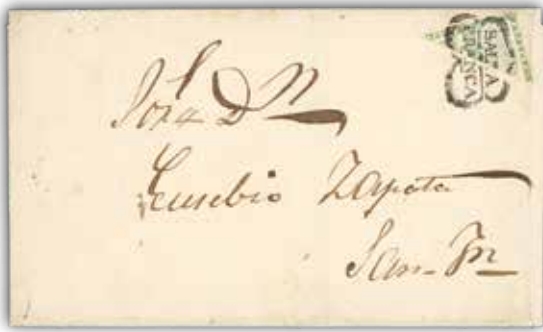 SALTA
FRANCA
Dn
Eusebio Zapata
San-